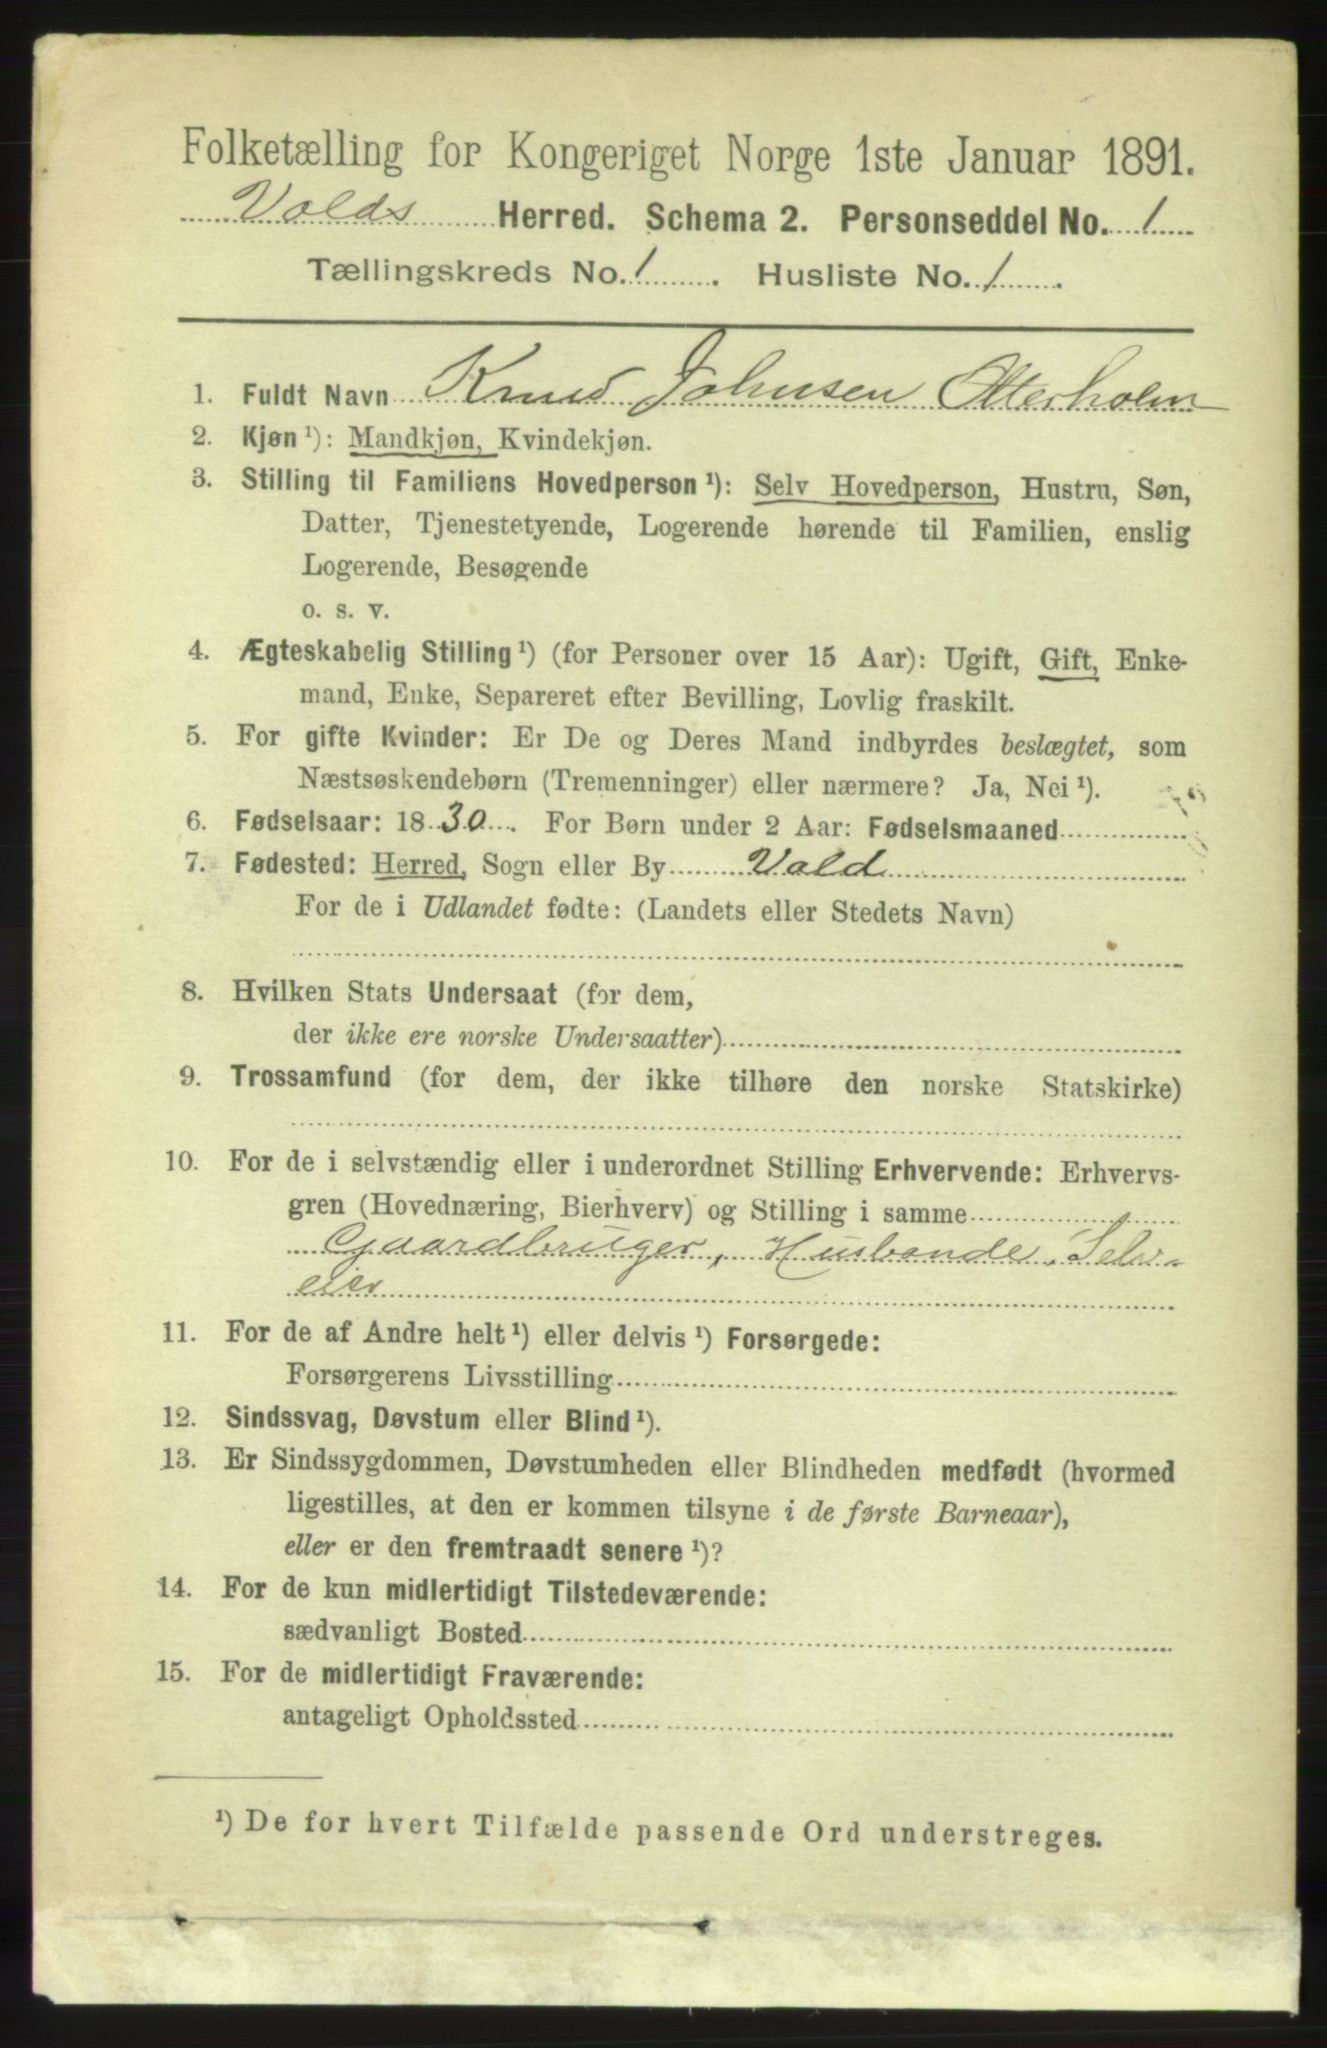 Folketælling for Kongeriget Norge 1ste Januar 1891.
Volds Herred. Schema 2. Personseddel No. 1
Tællingskreds No. 1. Husliste No. 1.
1. Fuldt Navn Knud Johnsen Otterholm
2. Kjøn ¹): Mandkjøn, Kvindekjøn.
3. Stilling til Familiens Hovedperson ¹): Selv Hovedperson, Hustru, Søn,
Datter, Tjenestetyende, Logerende hørende til Familien, enslig
Logerende, Besøgende
o. s. v.
4. Ægteskabelig Stilling ¹) (for Personer over 15 Aar): Ugift, Gift, Enke-
mand, Enke, Separeret efter Bevilling, Lovlig fraskilt.
5. For gifte Kvinder: Er De og Deres Mand indbyrdes beslægtet, som
Næstsøskendebørn (Tremenninger) eller nærmere? Ja, Nei ¹).
6. Fødselsaar: 1830. For Børn under 2 Aar: Fødselsmaaned
7. Fødested: Herred, Sogn eller By Vold
For de i Udlandet fødte: (Landets eller Stedets Navn)
8. Hvilken Stats Undersaat (for dem,
der ikke ere norske Undersaatter)
9. Trossamfund (for dem, der ikke tilhøre den norske Statskirke)
10. For de i selvstændig eller i underordnet Stilling Erhvervende: Erhvervs-
gren (Hovednæring, Bierhverv) og Stilling i samme
Gaardbruger, Husbonde, Selv-
eier
11. For de af Andre helt ¹) eller delvis ¹) Forsørgede:
Forsørgerens Livsstilling
12. Sindssvag, Døvstum eller Blind ¹).
13. Er Sindssygdommen, Døvstumheden eller Blindheden medfødt (hvormed
ligestilles, at den er kommen tilsyne i de første Barneaar),
eller er den fremtraadt senere ¹)?
14. For de kun midlertidigt Tilstedeværende:
sædvanligt Bosted
15. For de midlertidigt Fraværende:
antageligt Opholdssted
¹) De for hvert Tilfælde passende Ord understreges.